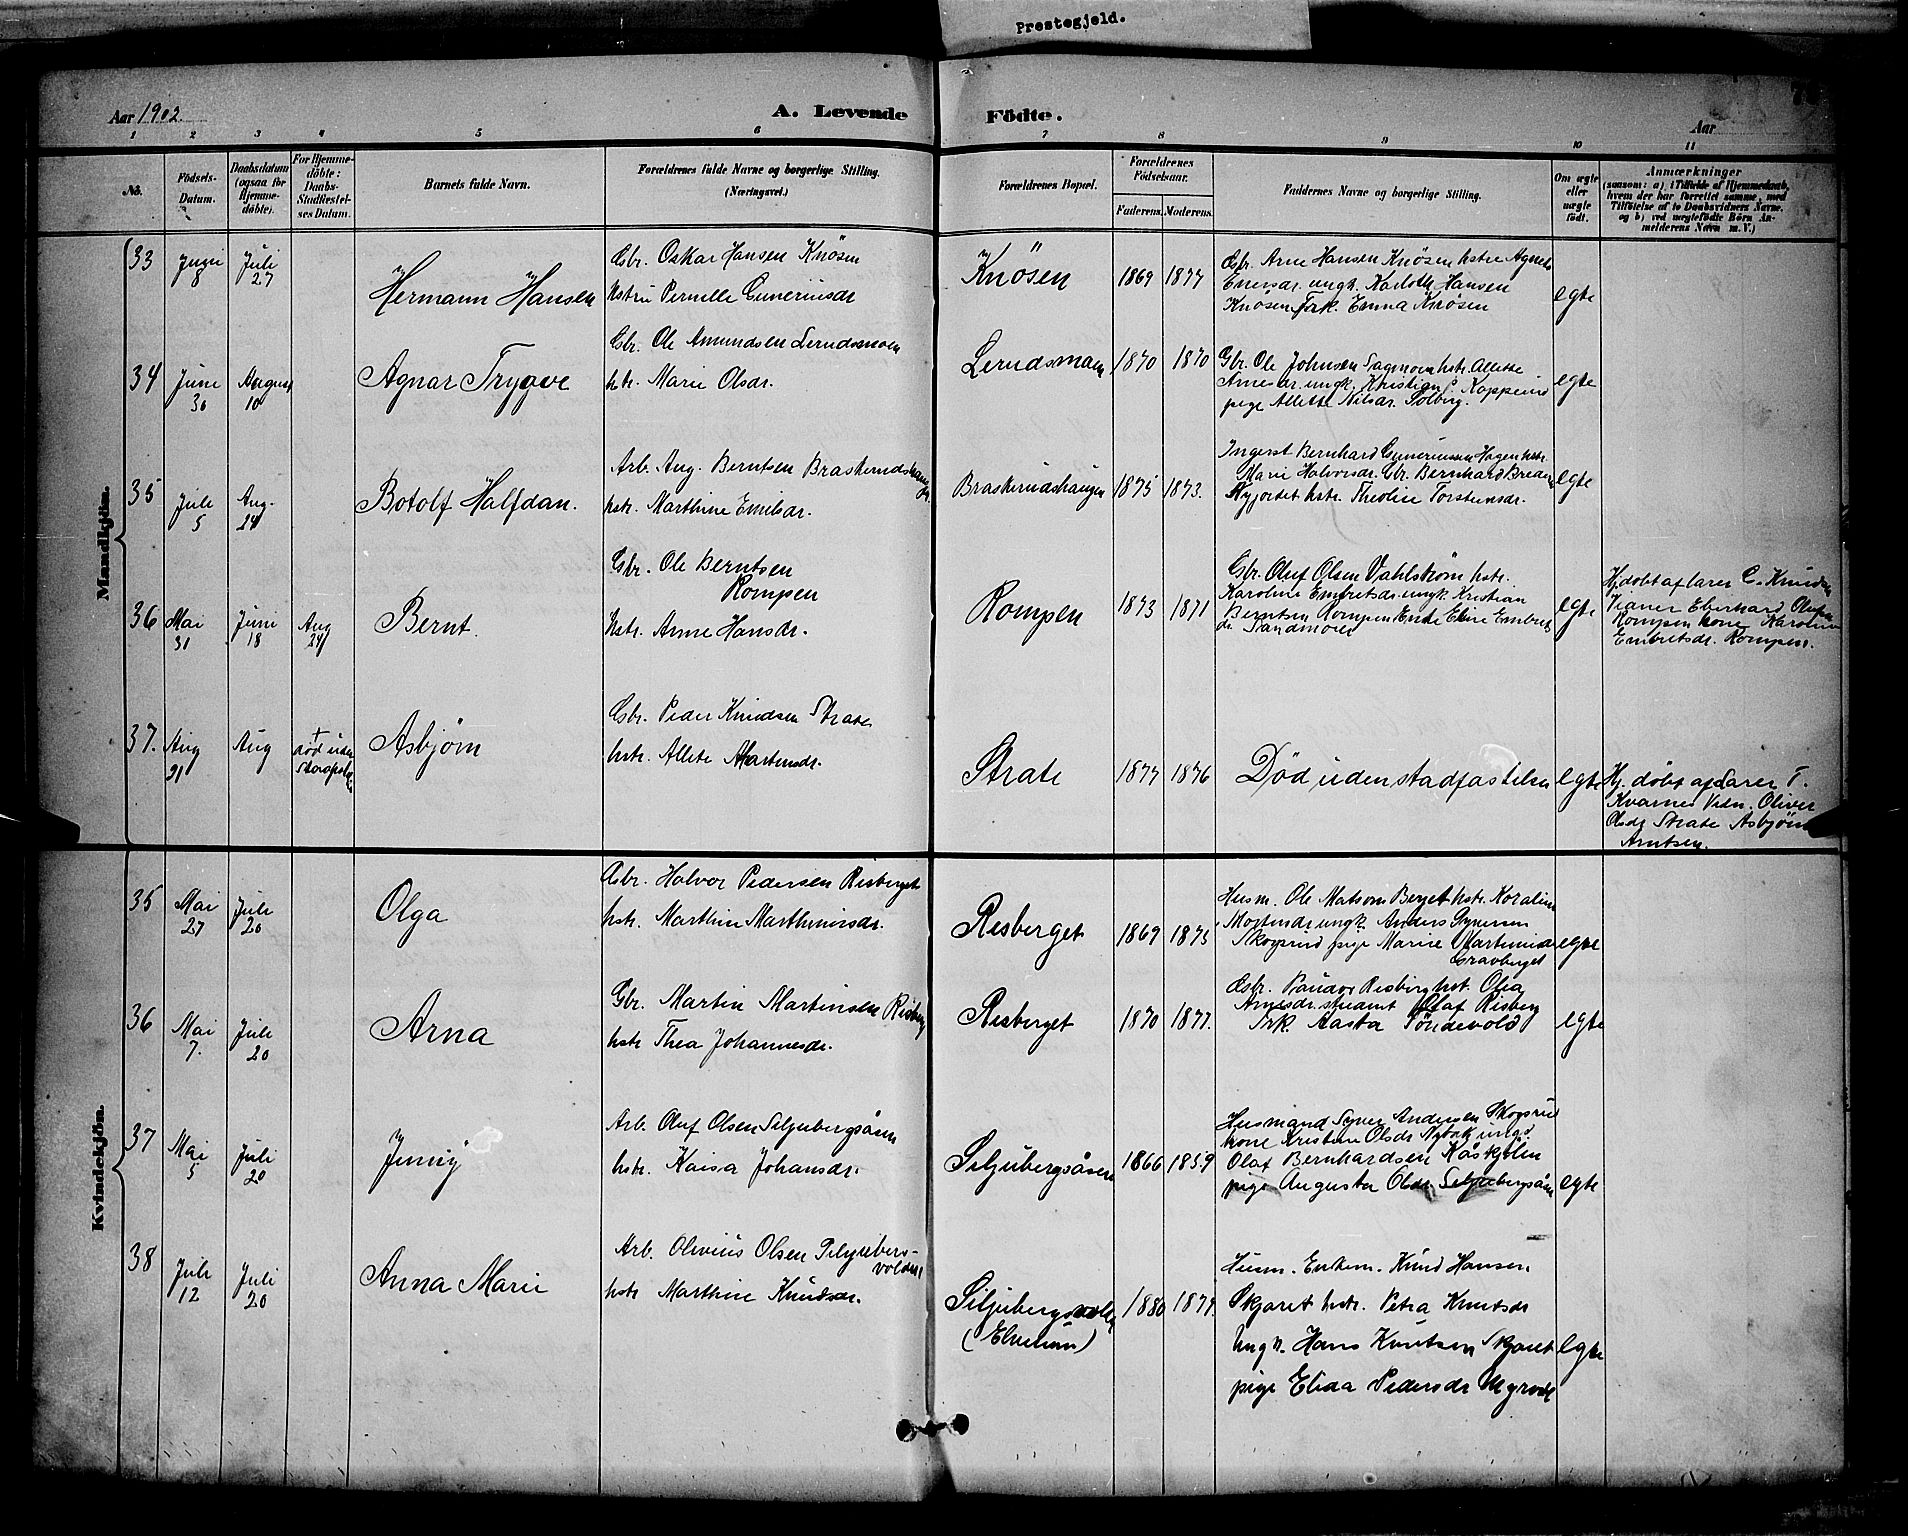 Prestegjeld.
Aar 1902.
A. Levende
Födte.
Aar
1 2 3 4 5 6 7 8 9 10 11
No.
Födsels-
Datum.
Daabsdatum
(ogsaa for
Hjemme-
döbte).
For Hjemme-
döbte:
Daabs-
Stadfæstel-
ses Datum.
Barnets fulde Navn.
Forældrenes fulde Navne og borgerlige Stilling.
(Næringsvei.)
Forældrenes Bopæl.
Forældrenes
Födselsaar.
Faderens. Moderens.
Faddernes Navne og borgerlige Stilling.
Om ægte
eller
uægte
født.
Anmærkninger
(saasom: a) i Tilfælde af Hjemmedaab,
hvem der har forrettet samme, med
Tilföielse af to Daabsvidners Navne,
og b) ved uægtefödte Börn An-
melderens Navn m. V.)
Mandkjön.
33
Juni
8
Juli
27
Hermann Hansen
Gbr. Oskar Hansen Knösen
hstru Pernelle Guneriusdr
Knösen
1869 1877
Gbr. Arne Hansen Knösen hstru Agnete
Enersdr. ungk. Karloth Hansen
Knösen Frk. Emma Knösen
egte
34
Juni
30
August
10
Agnar Trygve
Gbr. Ole Amundsen Lerudsmoen
hstr. Marie Olsdr.
Lerudsmoen
1870 1870
Gbr. Ole Johnsen Sagmoen hstr. Allette
Arnesdr. ungk. Kristian P. Kopperud
pige Allette Nilsdr. Solberg.
egte
35
Juli
5
Aug.
24
Botolf Halfdan.
Arb. Aug. Berntsen Braskerudshaugen
hstr. Marthine Emilsdr.
Braskerudshaugen
1875 1873.
Bernhard Guneriussen Hagen hstr.
Marie Halvorsdr. Gbr. Bernhard
Nygjordet hstr. Theoline Torstensdr.
egte
36
Mai
31
Juni
18
Aug
24
Bernt.
Gbr. Ole Berntsen
Rompen
hstr. Anne Hansdr.
Rompen
1873 1871
Gbr. Oluf Olsen Vahlström hstr.
Karoline Embretsdr. ungk. Kristian
Berntsen Rompen Enke Eline Embrets
dr. Sandmoen
egte
Hj. döbt af lærer C. Knudsen
Vidner Eberhard Olufsen
Rompen kone Karoline
Embretsdr. Rompen.
37.
Aug
21
Aug
†
död uden
Asbjørn
Gbr. Peder Knudsen Strate
hstr. Allete Martensdr.
Strate
1877 1876
Död uden stadfæstelse
egte
Hj. döbt af Lærer T.
Kvarnes Vidn. Oliver
Olsdr. Strate Asbjörn
Arntsen.
Kvindekjön.
35
Mai
27
Juli
20
Olga
Gbr. Halvor Pedersen Risberget
hstr. Marthine Marthinusdr.
Risberget
1869 1875
Husm. Ole Matsson Berget hstr. Karoline
Mortensdr. ungk. Anders Synersen
Skogsrud pige Marie Martinusdr
Gravberget
egte
36
Mai
7.
Juli
20
Arna
Gbr. Martin Martinsen Risberg
hstr Thea Johannesdr.
Risberget
1870 1877.
Gbr. Risberg hst. Olea
Arnesdr. Olaf Risberg
Frk. Aasta Töndevold
egte
37
Mai
5
Juli
20
Jenny
Arb. Oluf Olsen Siljubergsåsen
hstr. Kaisa Johansdr.
Siljubergsåsen
1866 1859
Husmand Syver Andersen Skogsrud
kone Kristine Olsdr Nybak ungd.
Olaf Bernhardsen Kåskjölen
pige Augusta Olsdr. Siljubergsåsen
egte
38
Juli
12
Juli
20
Anna Marie
Arb. Olivius Olsen Siljubergs-
volden
hstr Marthine Knudsdr.
Siljubergsvolden
1880 1877.
Husm. Enkem. Knud Hansen
Skjaret hstr. Petra Knutsdr
Ungk. Hans Knutsen Skjaret
pige Elida Pedersdr Myrvold
egte